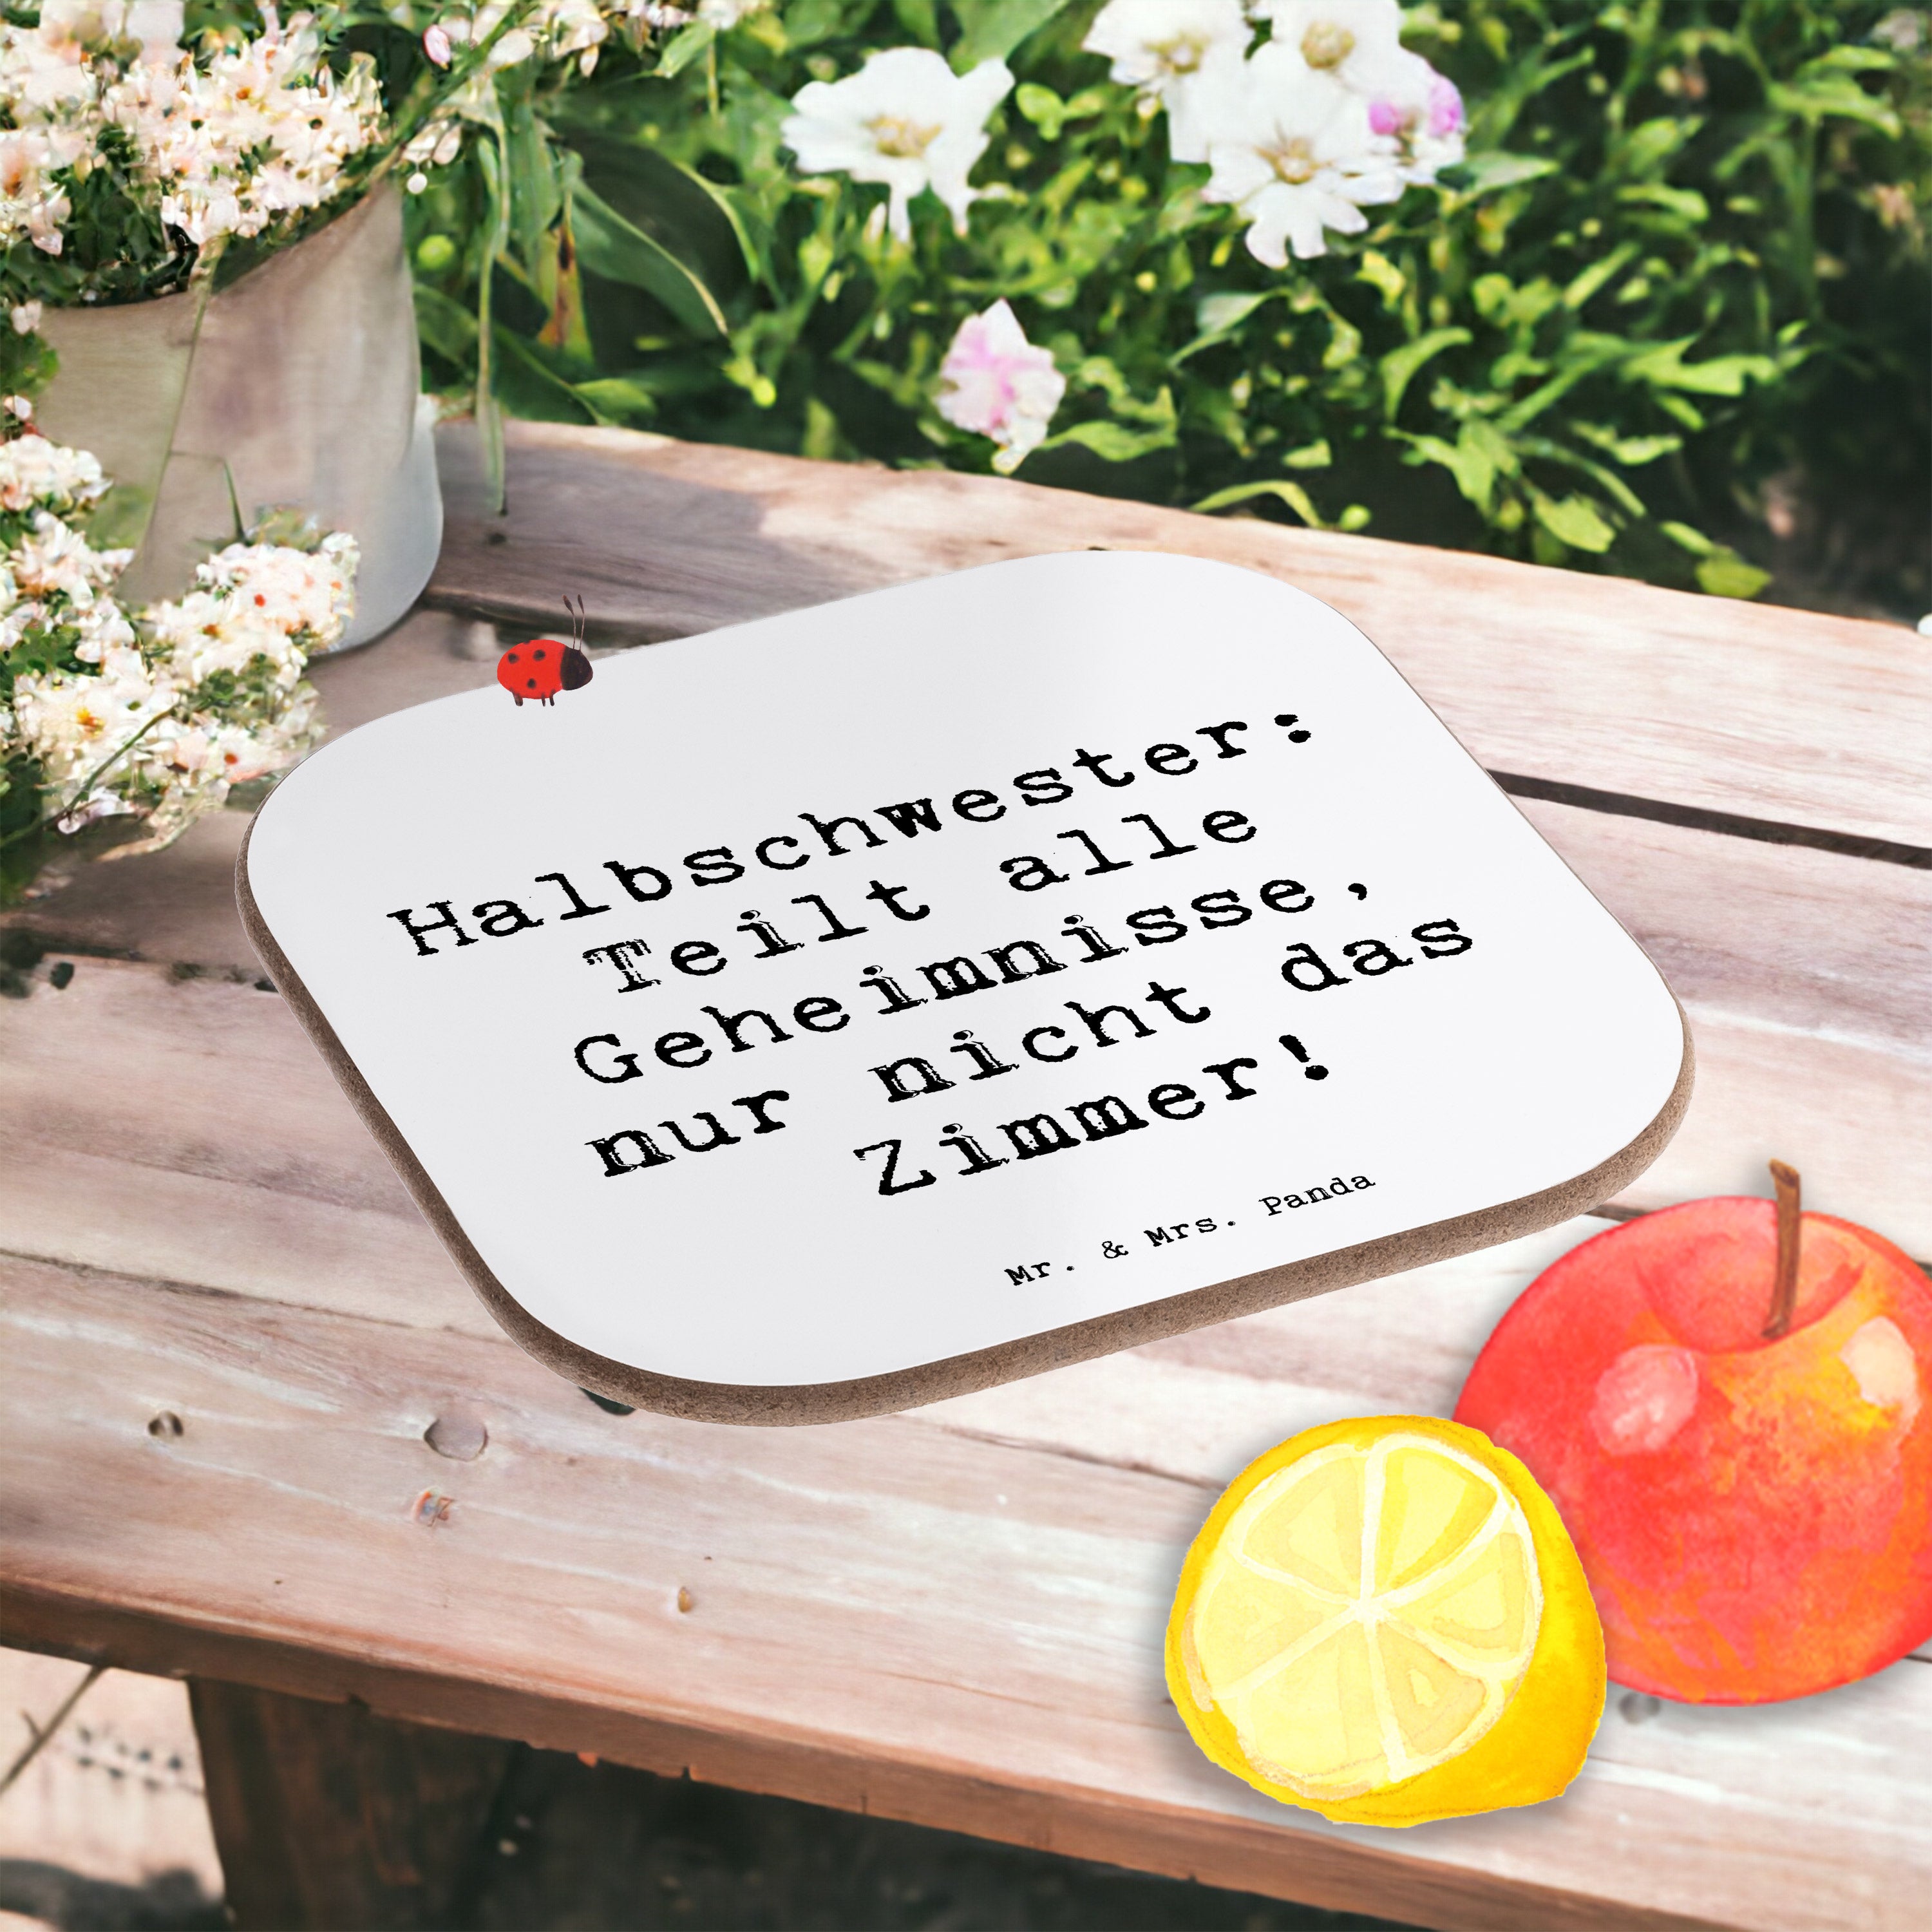 Halbschwester:
Teilt alle
Geheimnisse,
nur nicht das
Zimmer!
Mr. & Mrs. Panda